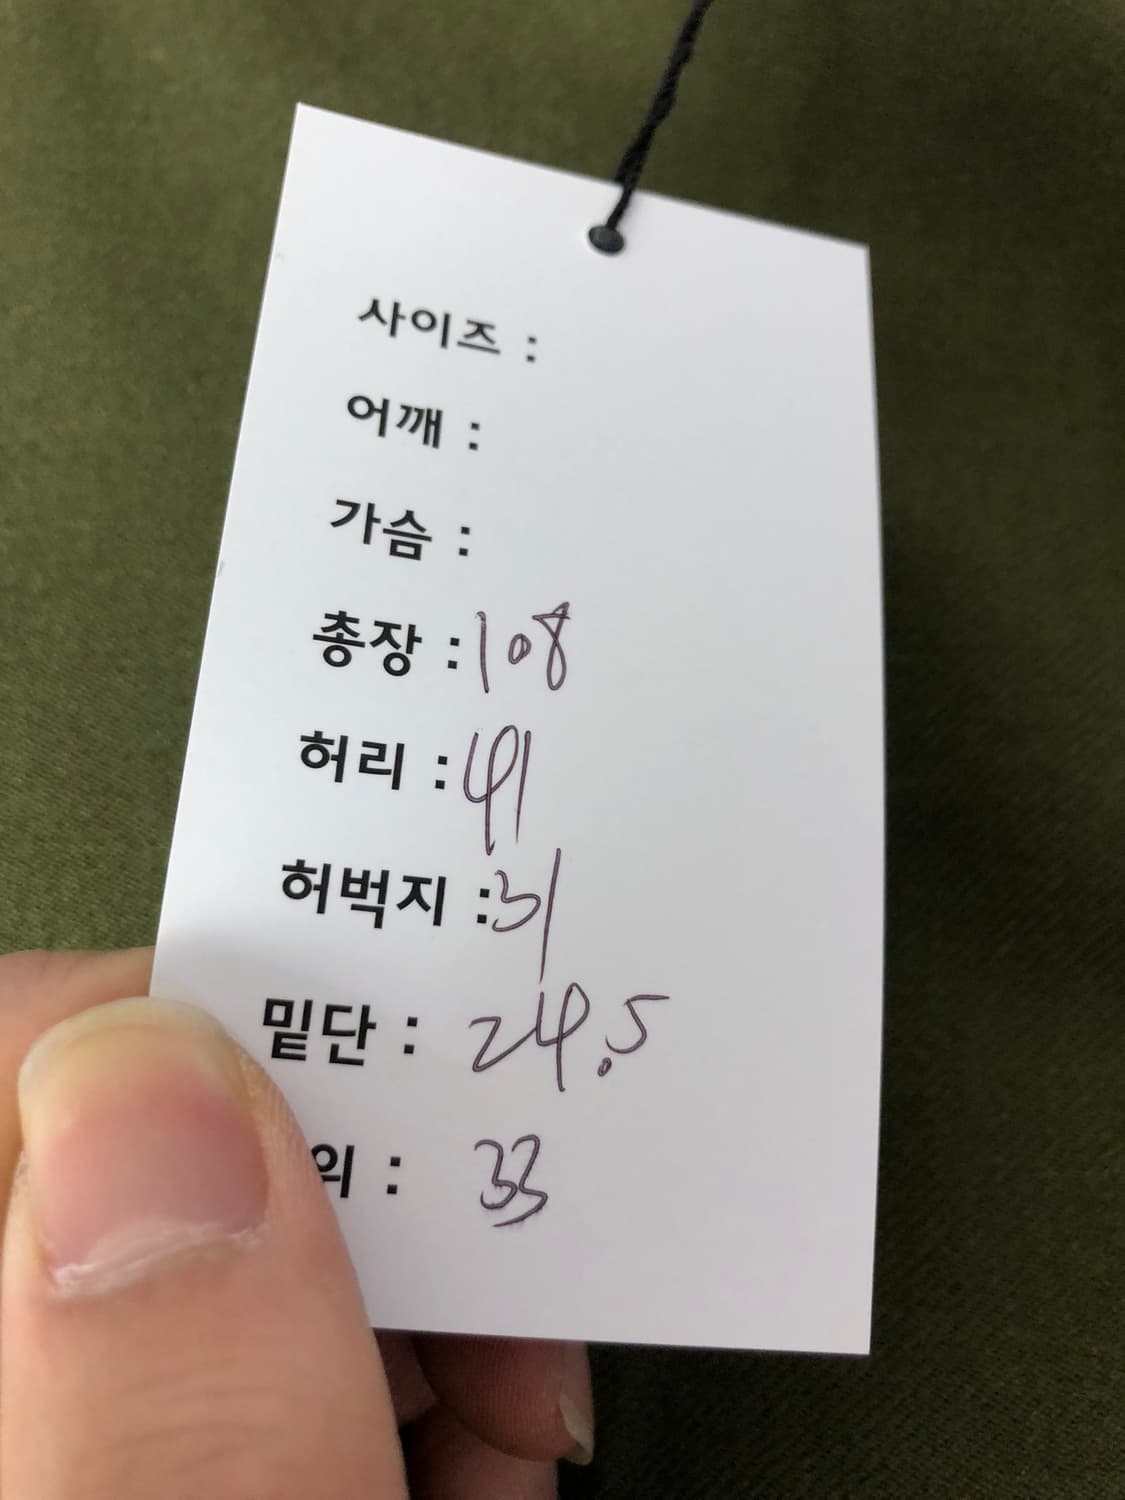 사이즈 :
어깨 :
가슴 :
총장 : 108
허리 : 41
허벅지 : 31
밑단 : 24.5
위 : 33